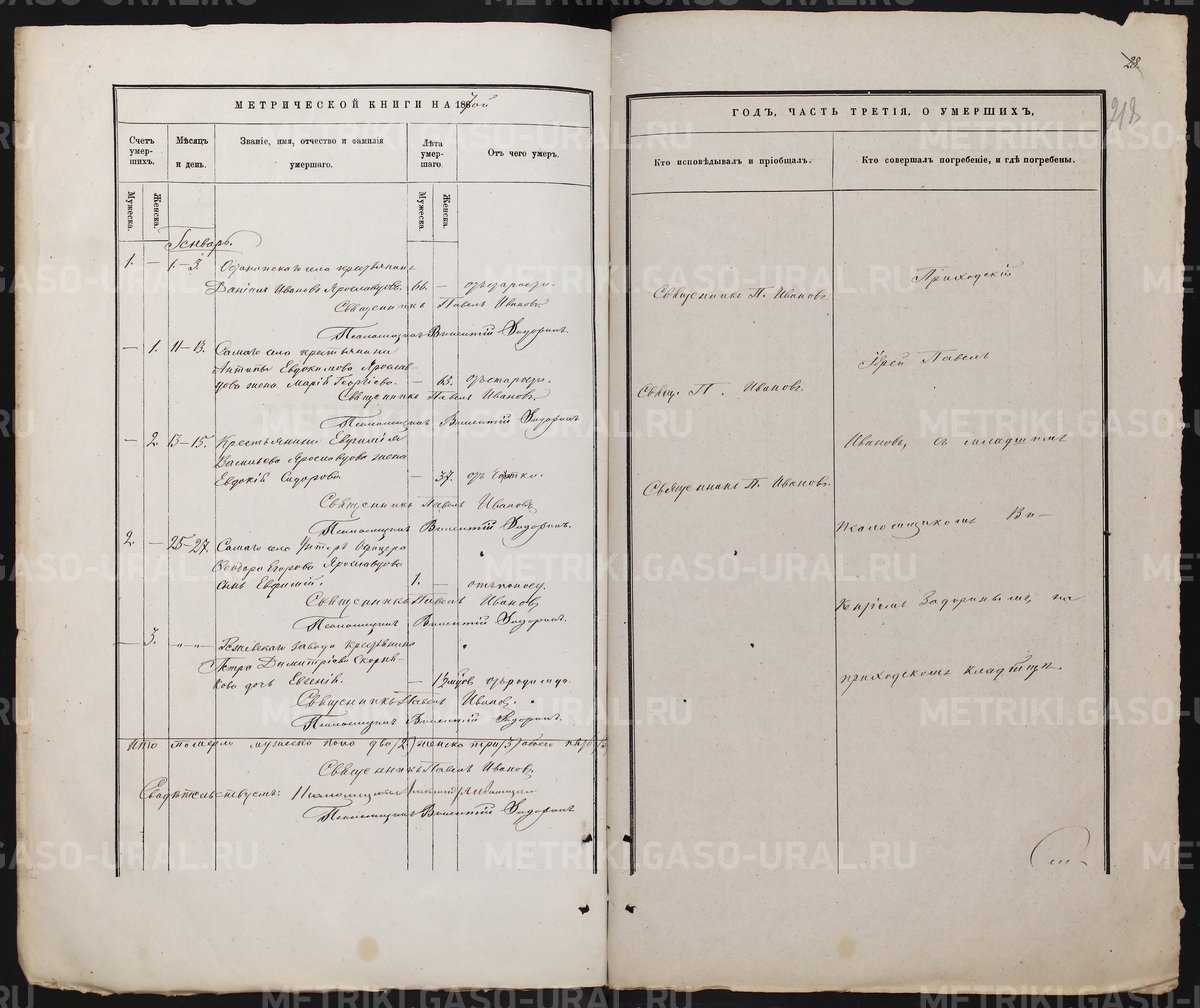 28
218
МЕТРИЧЕСКОЙ КНИГИ НА 1867ой
ГОДЪ, ЧАСТЬ ТРЕТІЯ, О УМЕРШИХЪ,
Счетъ умерших.
Мѣсяцъ и день.
Званіе, имя, отчество и фамилія умершаго.
Лѣта умершаго.
Отъ чего умеръ.
Кто исповѣдывалъ и пріобщалъ.
Кто совершалъ погребеніе, и гдѣ погребены.
Мужеска.
Женска.
Мужеска.
Женска.
Январь.
1. — 1–3. села крестьянинъ
Даніилъ Ивановъ Ярославцовъ. 66. — отъ старости.
Священникъ Павелъ Ивановъ
Псаломщикъ Викентій
Священникъ П. Ивановъ
Приходскій
— 1. 11–13. Самаго села крестьянина
Антипы Евдокимова Ярослав-
цова жена Марія Георгіева. — 65. отъ старости.
Священникъ Павелъ Ивановъ
Псаломщикъ Викентій
Свящ. П. Ивановъ
Іерей Павелъ
— 2. 13–15. Крестьянина Евгенія
Васильева Ярославцова жена
Евдокія Сидорова. — 37.
Священникъ Павелъ Ивановъ
Псаломщикъ Викентій
Священникъ П. Ивановъ.
Ивановъ, съ младшимъ
2. — 25–27. Самаго села Унтеръ Офицера
Ѳеодора Егорова Ярославцова
сынъ Евфимій. 1. — отъ поносу.
Священникъ Павелъ Ивановъ
Псаломщикъ Викентій
псаломщикомъ Ви-
кентіемъ Задоринымъ, на
— 3. " – " завода крестьянина
Петра Димитріева Скорня-
кова дочь Евгенія. — отъ родимца.
Священникъ Павелъ Ивановъ.
Псаломщикъ Викентій
приходскомъ кладбищѣ.
Итого померло мужеска пола два (2) женска три (3) обоего
Священникъ Павелъ Ивановъ
Свидѣтельствуемъ: Псаломщикъ
Псаломщикъ Викентій
METRIKI.GASO-URAL.RU